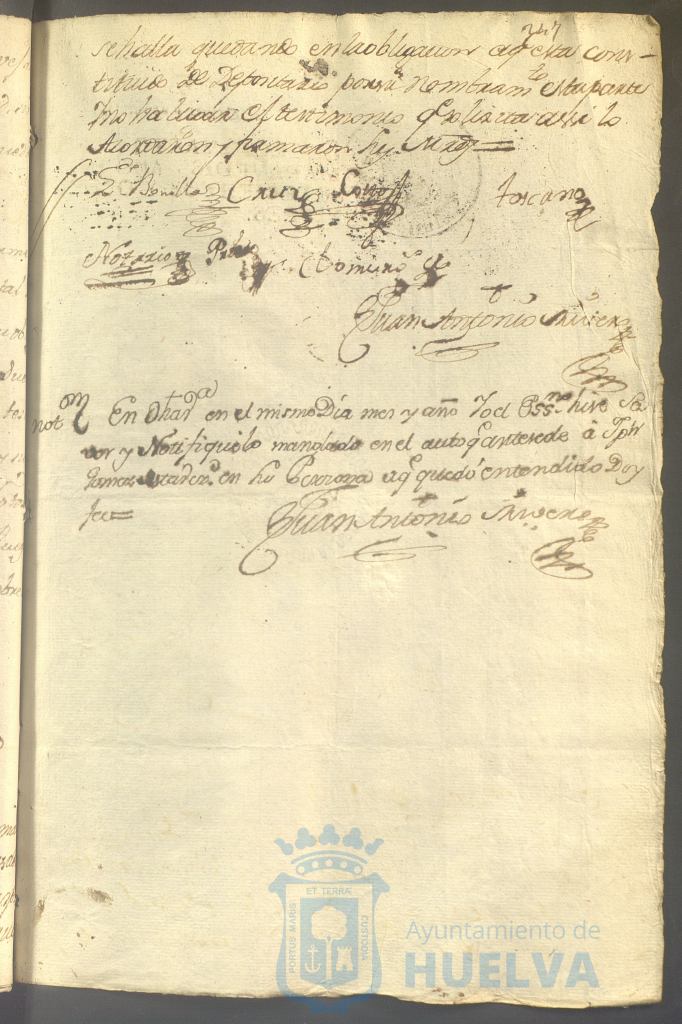 247
se halla quedando en la obligacion a q esta cons-
tituido de Depositario por su Nombram.to esta parte
Ynohabilidan el testimonio q solicita assi lo
Acordaron y firmaron sus Mrds=
Bonilla Cruz Cotto Toscano
Notario Romero
Juan Antonio Rivero
not En dha v.a en el mismo Dia mes y año Yo el Ess.no hise Sa
ver y Notifique lo mandado en el auto q antesede à Jph
Gomez en su Perzona a q quedó entendido Doy
fee=
Juan Antonio Rivero
PORTUS MARIS ET TERRÆ CUSTODIA
Ayuntamiento de
HUELVA